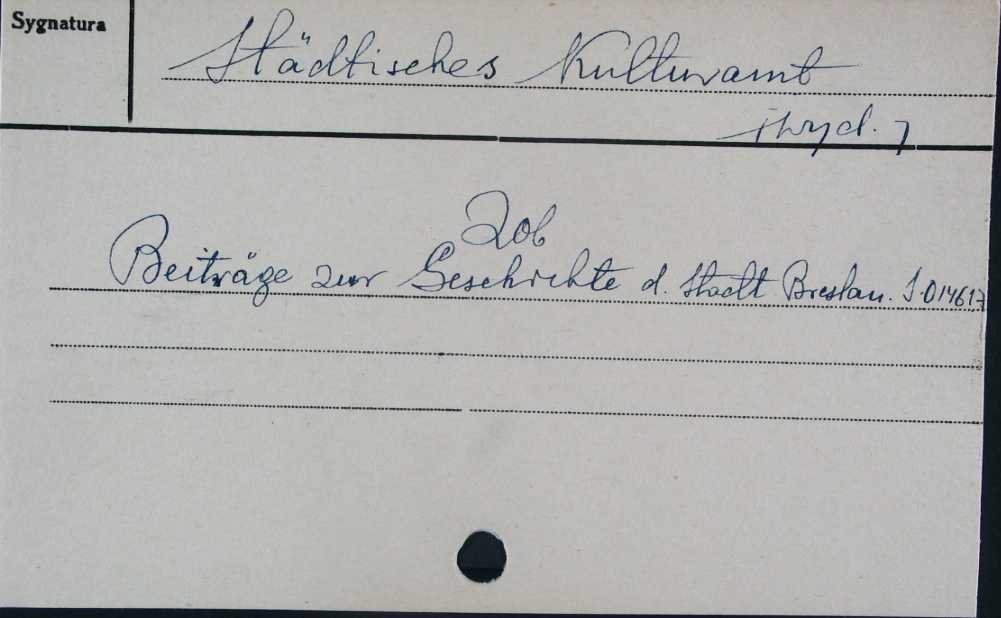 Sygnatura
Städtisches Kulturamt
[wyd. 7
Zob
Beiträge zur Geschichte d. Stadt Breslau. S. 014617